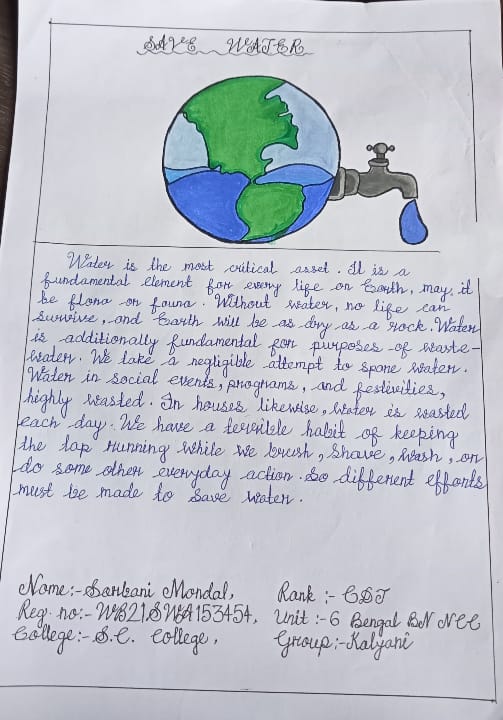 SAVE WATER
Water is the most critical asset. It is a
fundamental element for every life on Earth, may it
be flora or fauna. Without water, no life can
survive, and Earth will be as dry as a rock. Water
is additionally fundamental for purposes of waste-
water. We take a negligible attempt to spare water.
Water in social events, programs, and festivities,
highly wasted. In houses likewise, water is wasted
each day. We have a terrible habit of keeping
the tap running while we brush, shave, wash, or
do some other everyday action. So different efforts
must be made to save water.
Name:- Sarbani Mondal, Rank :- CDT
Reg. no:- WB21SWA153454, Unit :- 6 Bengal BN NCC
College:- S.C. College, Group:- Kalyani